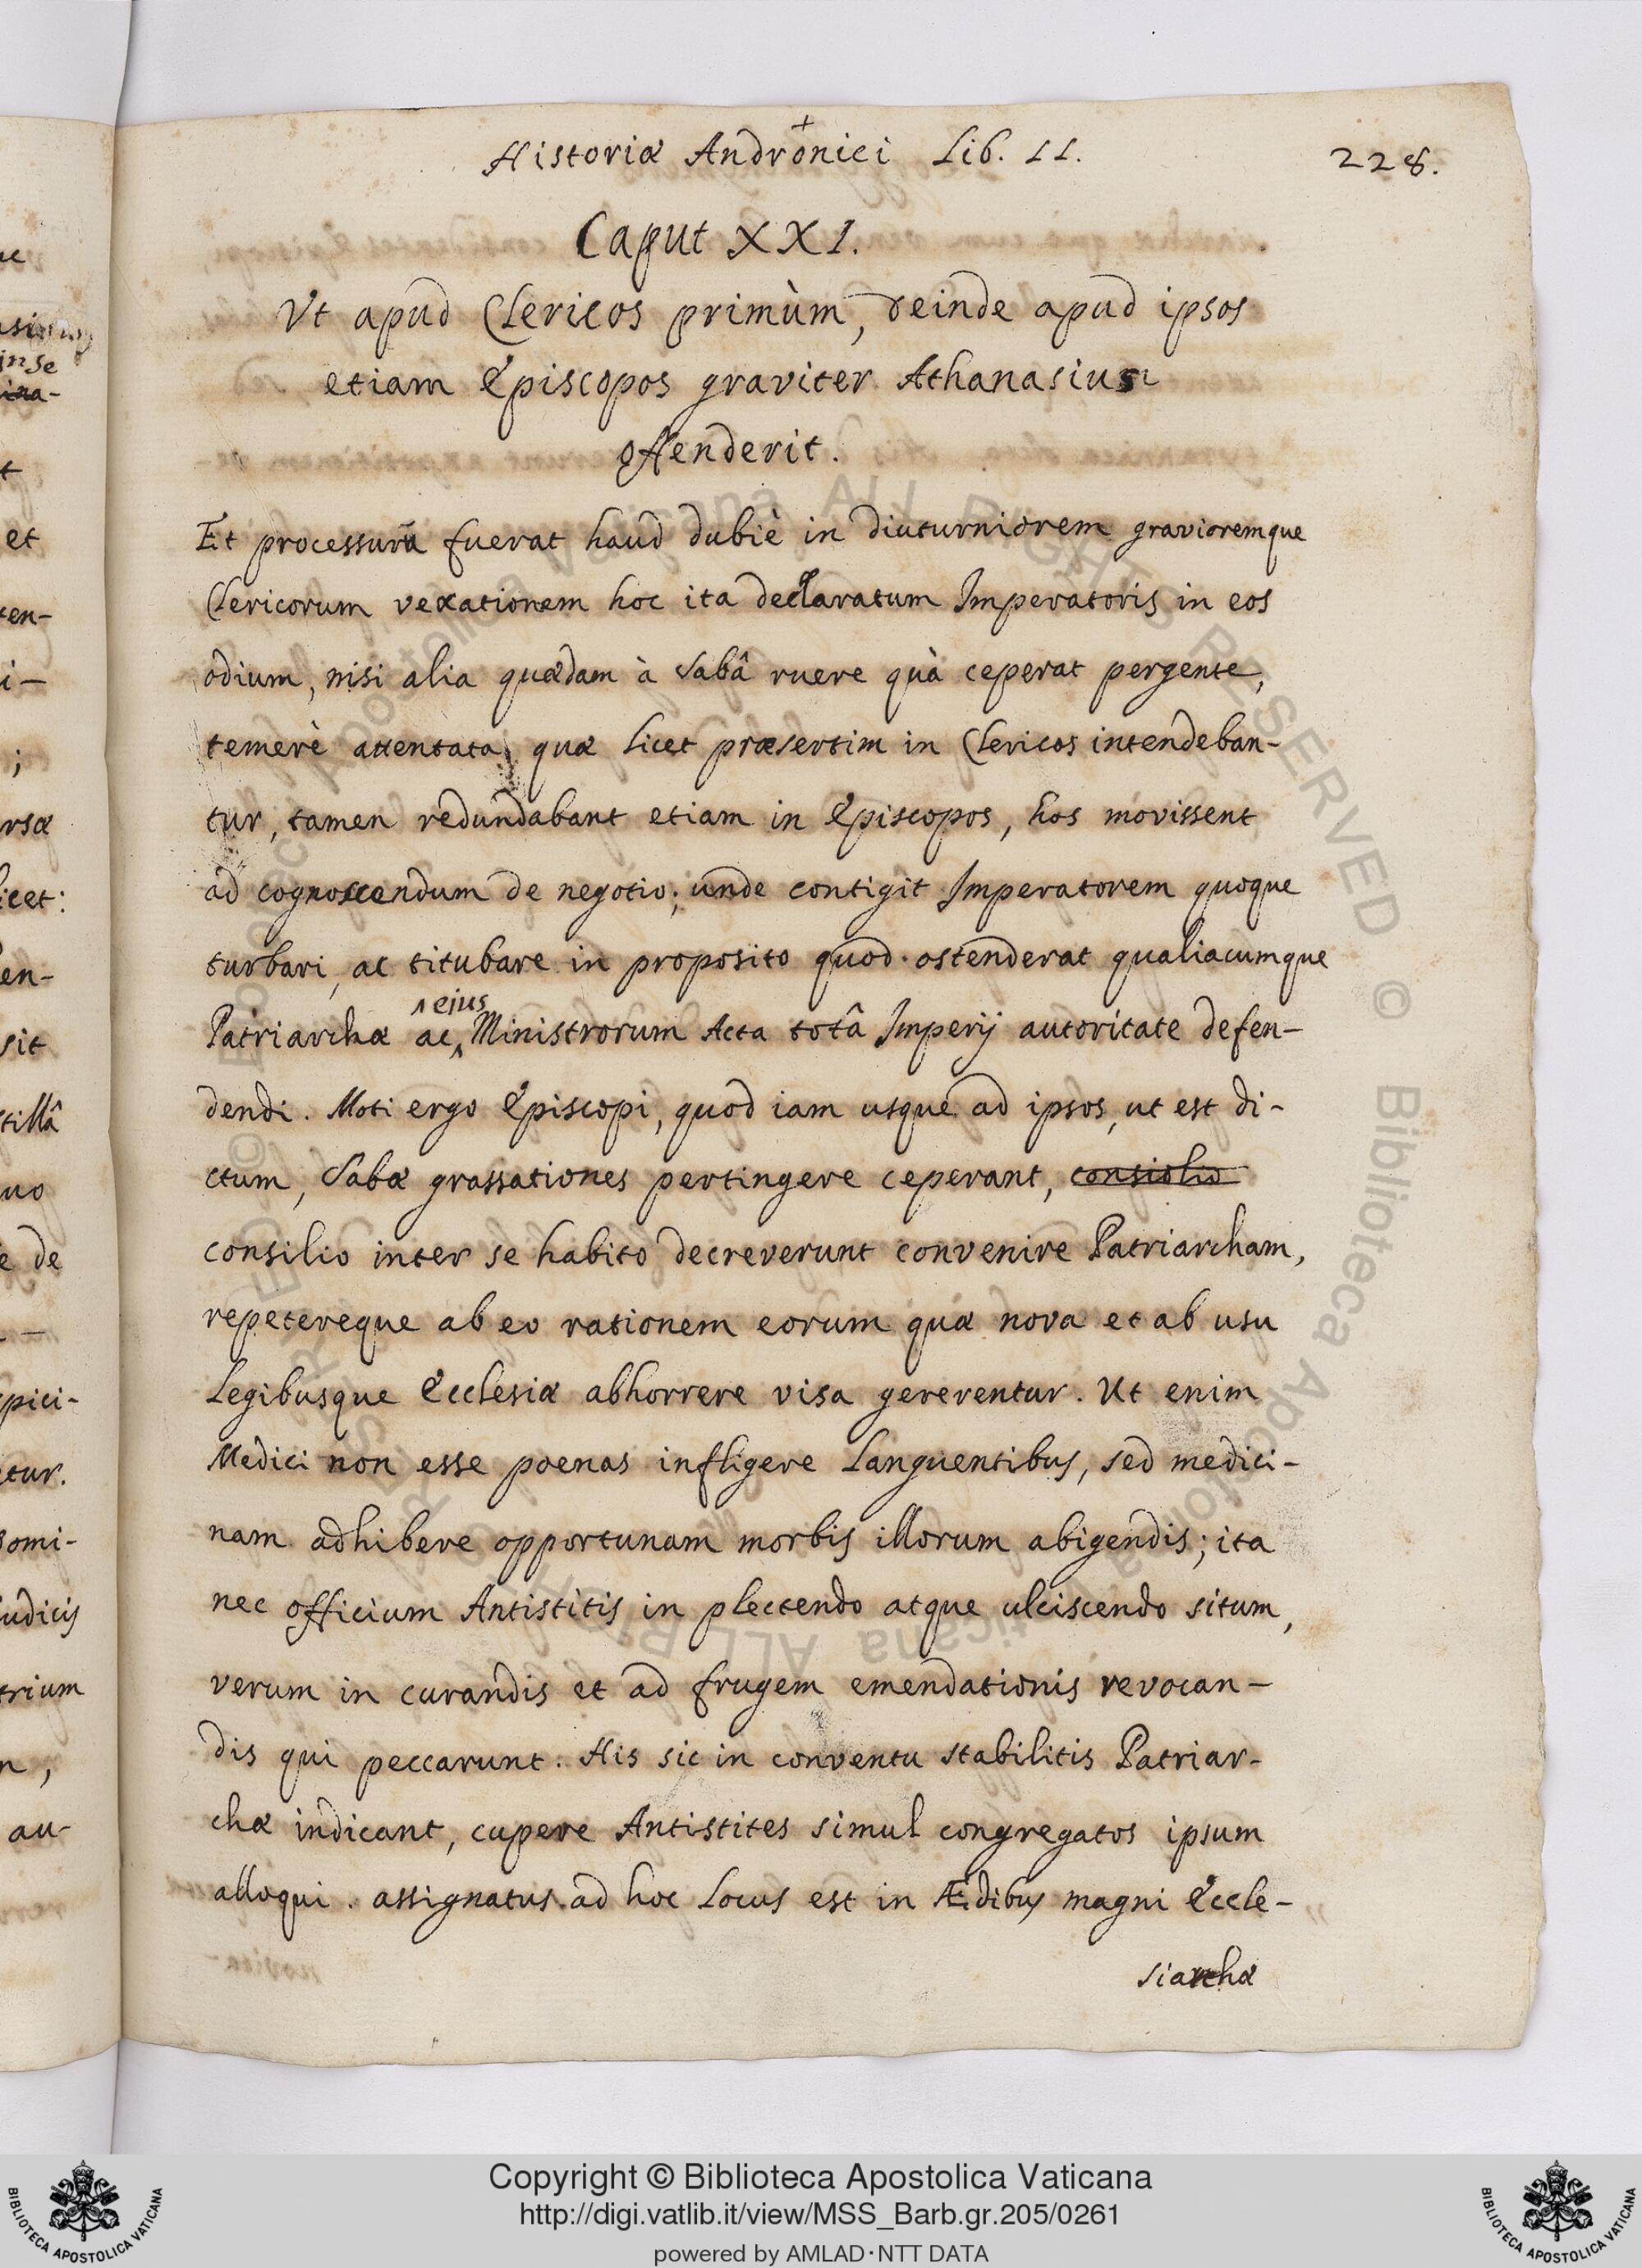 Historiæ Andronici Lib. II.
228.
Caput XXI.
Vt apud Clericos primùm, deinde apud ipsos
etiam Episcopos graviter Athanasius
offenderit.
Et processurũ fuerat haud dubiè in diuturniorem gravioremque
Clericorum vexationem hoc ita declaratum Imperatoris in eos
odium, nisi alia quædam à Sabâ ruere quà ceperat pergente,
temerè attentata, quæ licet præsertim in Clericos intendeban-
tur, tamen redundabant etiam in Episcopos, hos movissent
ad cognoscendum de negotio; unde contigit Imperatorem quoque
turbari, ac titubare in proposito quod ostenderat qualiacumque
Patriarchæ ac ejus Ministrorum Acta totâ Imperij autoritate defen-
dendi. Moti ergo Episcopi, quod iam usque ad ipsos, ut est di-
ctum, Sabæ grassationes pertingere ceperant, consiolio
consilio inter se habito decreverunt convenire Patriarcham,
repetereque ab eo rationem eorum quæ nova et ab usu
Legibusque Ecclesiæ abhorrere visa gererentur. Ut enim
Medici non esse poenas infligere Languentibus, sed medici-
nam adhibere opportunam morbis illorum abigendis; ita
nec officium Antistitis in plectendo atque ulciscendo situm,
verum in curandis et ad frugem emendationis revocan-
dis qui peccarunt. His sic in conventu stabilitis Patriar-
chæ indicant, cupere Antistites simul congregatos ipsum
alloqui. assignatus ad hoc Locus est in Ædibus magni Eccle-
siarchæ
et
ten-
rsæ
icet:
en-
sit
tillâ
uo
e de
pici-
etur.
omi-
udicijs
trium
au-
Copyright © Biblioteca Apostolica Vaticana
http://digi.vatlib.it/view/MSS_Barb.gr.205/0261
powered by AMLAD·NTT DATA
BIBLIOTECA APOSTOLICA VATICANA
BIBLIOTECA APOSTOLICA VATICANA
© Biblioteca Apostolica Vaticana ALL RIGHTS RESERVED © Biblioteca Apostolica Vaticana ALL RIGHTS RESERVED